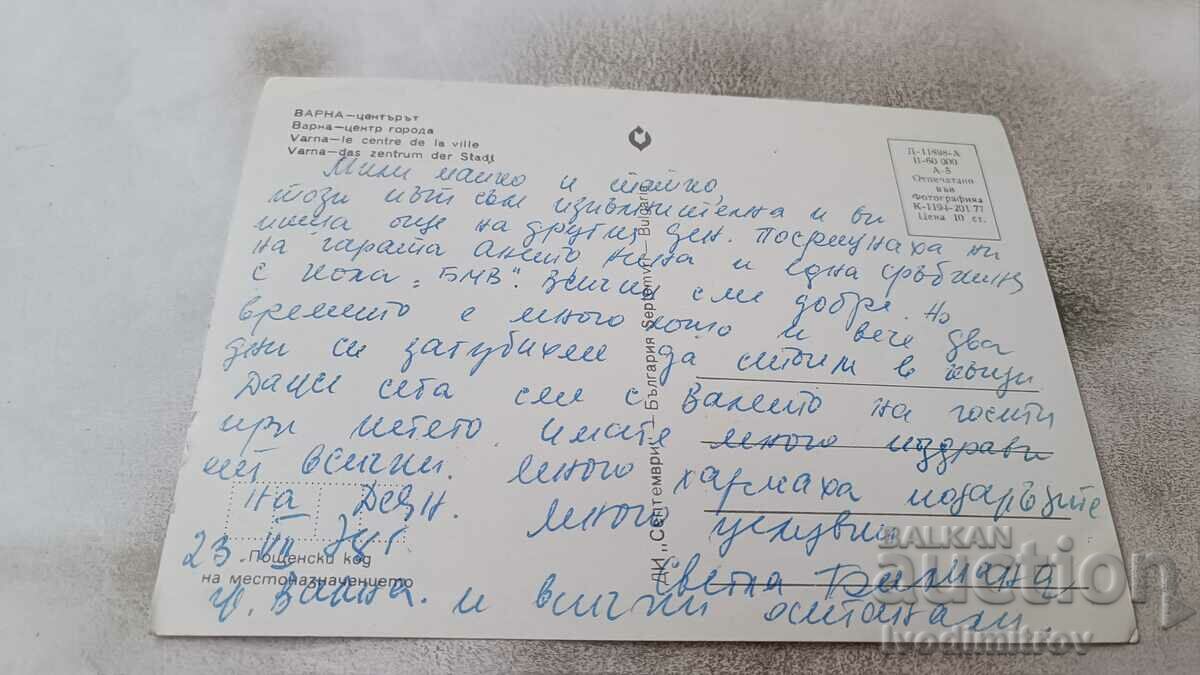 ВАРНА—центърът
Варна—центр города
Varna—le centre de la ville
Varna—das zentrum der Stadt
Д-11898-А
II-60 000
А-5
Отпечатано
във
Фотографика
К-1194-201 77
Цена 10 ст.
Мили майко и татко,
този път съм изпълнителна и ви
пиша още на другия ден. Посрещнаха ни
на гарата Ането Нина и една сръбкиня
с кола „БМВ". Всички сме добре. Но
времето е много лошо и вече два
дни се загубихме да стоим в къщи
Даже сега сме с Ването на гости
при петето. Имате много поздрави
от всички. Много хармаха подаръците
на Деян. Много целувки
23 VII
Светла Биляна
гр. Варна. и всички останали.
Пощенски код
на местоназначението
ДИ „Септември" — България Septemvri — Bulgaria
BALKAN
auction
ivodimitrov